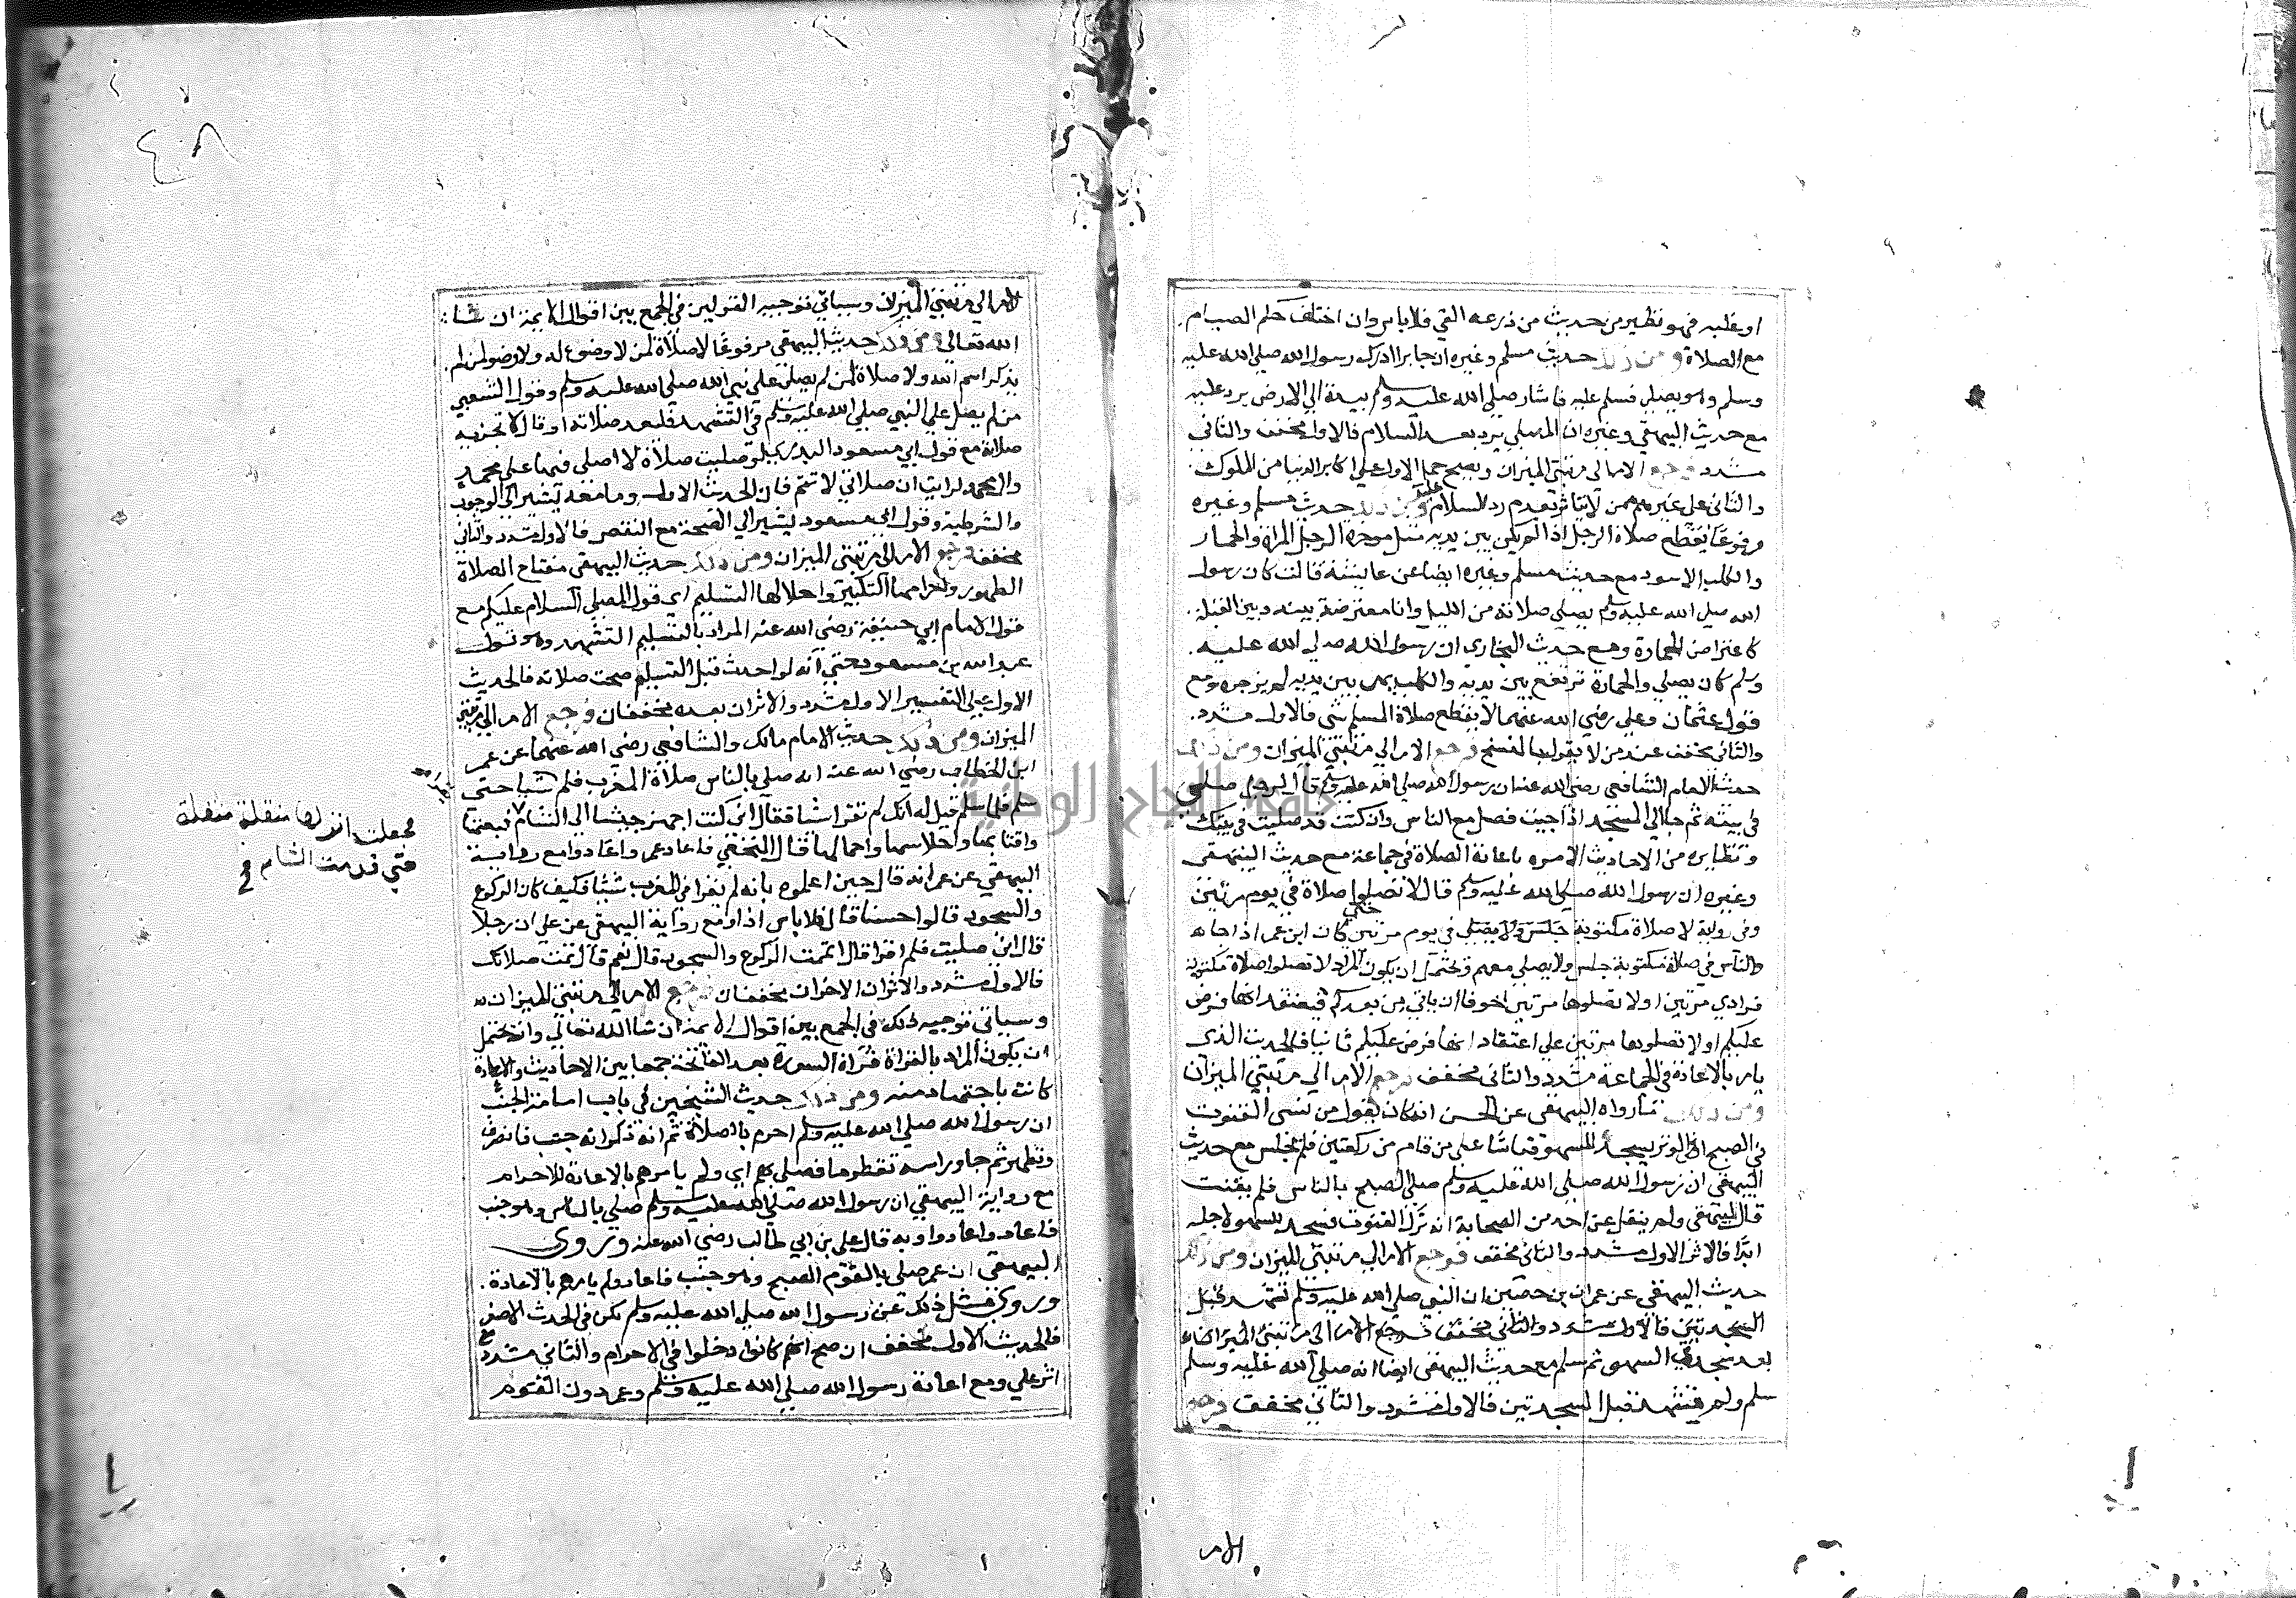 او غلبه فهو نظير من حديث من ذرعه القي فلا باس وان اختلف حكم الصيام
مع الصلاة ومن ذلك حديث مسلم وغيره ان جابرا ادرك رسول الله صلي الله عليه
وسلم وهو يصلي فسلم عليه فاشار صلي الله عليه وسلم بيده الي الارض يرد عليه
مع حديث البيهقي وغيره ان المصلي يرد بعد السلام فالاول مخفف والثاني
مشدد فرجع الامر الي مرتبتي الميزان ويصح حمل الاول علي اكابر الدنيا من الملوك
والثاني علي غيرهم ممن لا يتاثر بعدم رد السلام عليه ومن ذلك حديث مسلم وغيره
مرفوعًا يقطع صلاة الرجل اذا لم يكن بين يديه مثل موخرة الرحل المراة والحمار
والكلب الاسود مع حديث مسلم وغيره ايضا عن عايشة قالت كان رسول
الله صلي الله عليه وسلم يصلي صلاته من الليل وانا معترضة بينه وبين القبلة
كاعتراض الجنازة ومع حديث البخاري ان رسول الله صلي الله عليه
وسلم كان يصلي والحمارة ترتع بين يديه والكلب يمر بين يديه لم يزجره ومع
قول عثمان وعلي رضي الله عنهما لا يقطع صلاة المسلم شي فالاول مشدد
والثاني مخفف عند من لا يقول بالنسخ فرجع الامر الي مرتبتي الميزان ومن ذلك
حديث الامام الشافعي رضي الله عنه ان رسول الله صلي الله عليه وسلم قال لرجل صلي
في بيته ثم جا الي المسجد اذا جيت فصل مع الناس وان كنت قد صليت في بيتك
ونظايره من الاحاديث الامره باعادة الصلاة في جماعة مع حديث البيهقي
وغيره ان رسول الله صلي الله عليه وسلم قال لا تصلوا صلاة في يوم مرتين
وفي رواية لا صلاة مكتوبة في يوم مرتين حتي كان ابن عمر اذا جاه
والناس في صلاة مكتوبة جلس ولا يصلي معهم ويحتمل ان يكون المراد لا تصلوا صلاة مكتوبة
فرادي مرتين او لا تصلوها مرتين خوفا ان ياتي من بعدكم فيعتقد انها فرض
عليكم او لا تصلوها مرتين علي اعتقاد انها فرض عليكم ثانيا فالحديث الذي
يامر بالاعادة في الجماعة مشدد والثاني مخفف فرجع الامر الي مرتبتي الميزان
ومن ذلك مارواه البيهقي عن الحسن انه كان يقول من نسي القنوت
في الصبح او الوتر يسجد للسهو قياسًا علي من قام من ركعتين فلم يجلس مع حديث
البيهقي ان رسول الله صلي الله عليه وسلم صلي الصبح بالناس فلم يقنت
قال البيهقي ولم ينقل عن احد من الصحابة انه ترك القنوت فسجد للسهو لاجله
ابدًا فالاثر الاول مشدد والثاني مخفف فرجع الامر الي مرتبتي الميزان ومن ذلك
حديث البيهقي عن عمران بن حصين ان النبي صلي الله عليه وسلم تشهد قبل
السجدتين فالاول مشدد والثاني مخفف فرجع الامر الي مرتبتي الميزان
بعد سجدتي السهو ثم سلم مع حديث البيهقي ايضا انه صلي الله عليه وسلم
سلم ولم يتشهد قبل السجدتين فالاول مشدد والثاني مخفف فرجع
الامر
٤٨
الامر الي مرتبتي الميزان وسياتي توجيه القولين في الجمع بين اقوال الايمة ان شا
الله تعالي ومن ذلك حديث البيهقي مرفوعًا لا صلاة لمن لا وضوء له ولا وضو لمن لم
يذكر اسم الله ولا صلاة لمن لم يصل علي نبي الله صلي الله عليه وسلم وقول الشعبي
من لم يصل علي النبي صلي الله عليه وسلم في التشهد فليعد صلاته او قال لا تجزيه
صلاته مع قول ابي مسعود البدري لو صليت صلاة لا اصلي فيها علي محمد
وال محمد لرايت ان صلاتي لا تتم فان الحديث الاول وما معه يشير الي الوجوب
والشرطية وقول ابي مسعود يشير الي الصحة مع النقص فالاول مشدد والثاني
مخفف فرجع الامر الي مرتبتي الميزان ومن ذلك حديث البيهقي مفتاح الصلاة
الطهور واحرامها التكبير واحلالها التسليم اي قول المصلي السلام عليكم مع
قول الامام ابي حنيفة رضي الله عنه المراد بالتسليم التشهد وهو قول
عبد الله بن مسعود حتي انه لو احدث قبل التسليم صحت صلاته فالحديث
الاول علي التفسير الاول مشدد والاثران بعده مخففان فرجع الامر الي مرتبتي
الميزان ومن ذلك حديث الامام مالك والشافعي رضي الله عنهما عن عمر
ابن الخطاب رضي الله عنه انه صلي بالناس صلاة المغرب فلم شيا حتي
سلم فلما سلم قيل له انك لم تقرا شيا فقال اني كنت اجهز جيشا الي الشام فبعتها
واقتابها واحلاسها واحمالها قال النخعي فاعاد عمر واعادوا مع رواية
البيهقي عن عمر انه قال حين اعلموه بانه لم يقرا في المغرب شيًا فكيف كان الركوع
والسجود قالوا حسنا قال فلا باس اذا ومع رواية البيهقي عن علي ان رجلا
قال اني صليت فلم اقرا قال اتممت الركوع والسجود قال نعم قال تمت صلاتك
فالاول مشدد والاثران الاخران مخففان فرجع الامر الي مرتبتي الميزان
وسياتي توجيه ذلك في الجمع بين اقوال الايمة ان شا الله تعالي ويحتمل
ان يكون المراد بالقراة قراة السورة بعد الفاتحة جمعا بين الاحاديث والاعادة
كانت باجتهاد منه ومن ذلك حديث الشيخين في باب امامة الجنب
ان رسول الله صلي الله عليه وسلم احرم بالصلاة ثم انه ذكر انه جنب فانصرف
وتطهر ثم جا وراسه تقطر ما فصلي بهم اي ولم يامرهم بالاعادة للاحرام
مع رواية البيهقي ان رسول الله صلي الله عليه وسلم صلي بالناس وهو جنب
فاعاد واعادوا وبه قال علي بن ابي طالب رضي الله عنه وروي
البيهقي ان عمر صلي بالقوم الصبح وهو جنب فاعاد ولم يامرهم بالاعادة
وروي مثل ذلك عن رسول الله صلي الله عليه وسلم لكن في الحدث الاصغر
فالحديث الاول مخفف ان صح انهم كانوا دخلوا في الاحرام والثاني مشدد مع
اثر علي ومع اعادة رسول الله صلي الله عليه وسلم وعمر دون القوم
فجعلت انزلها منقلة منقلة
حتي قدمت الشام
جامعة النجاح الوطنية